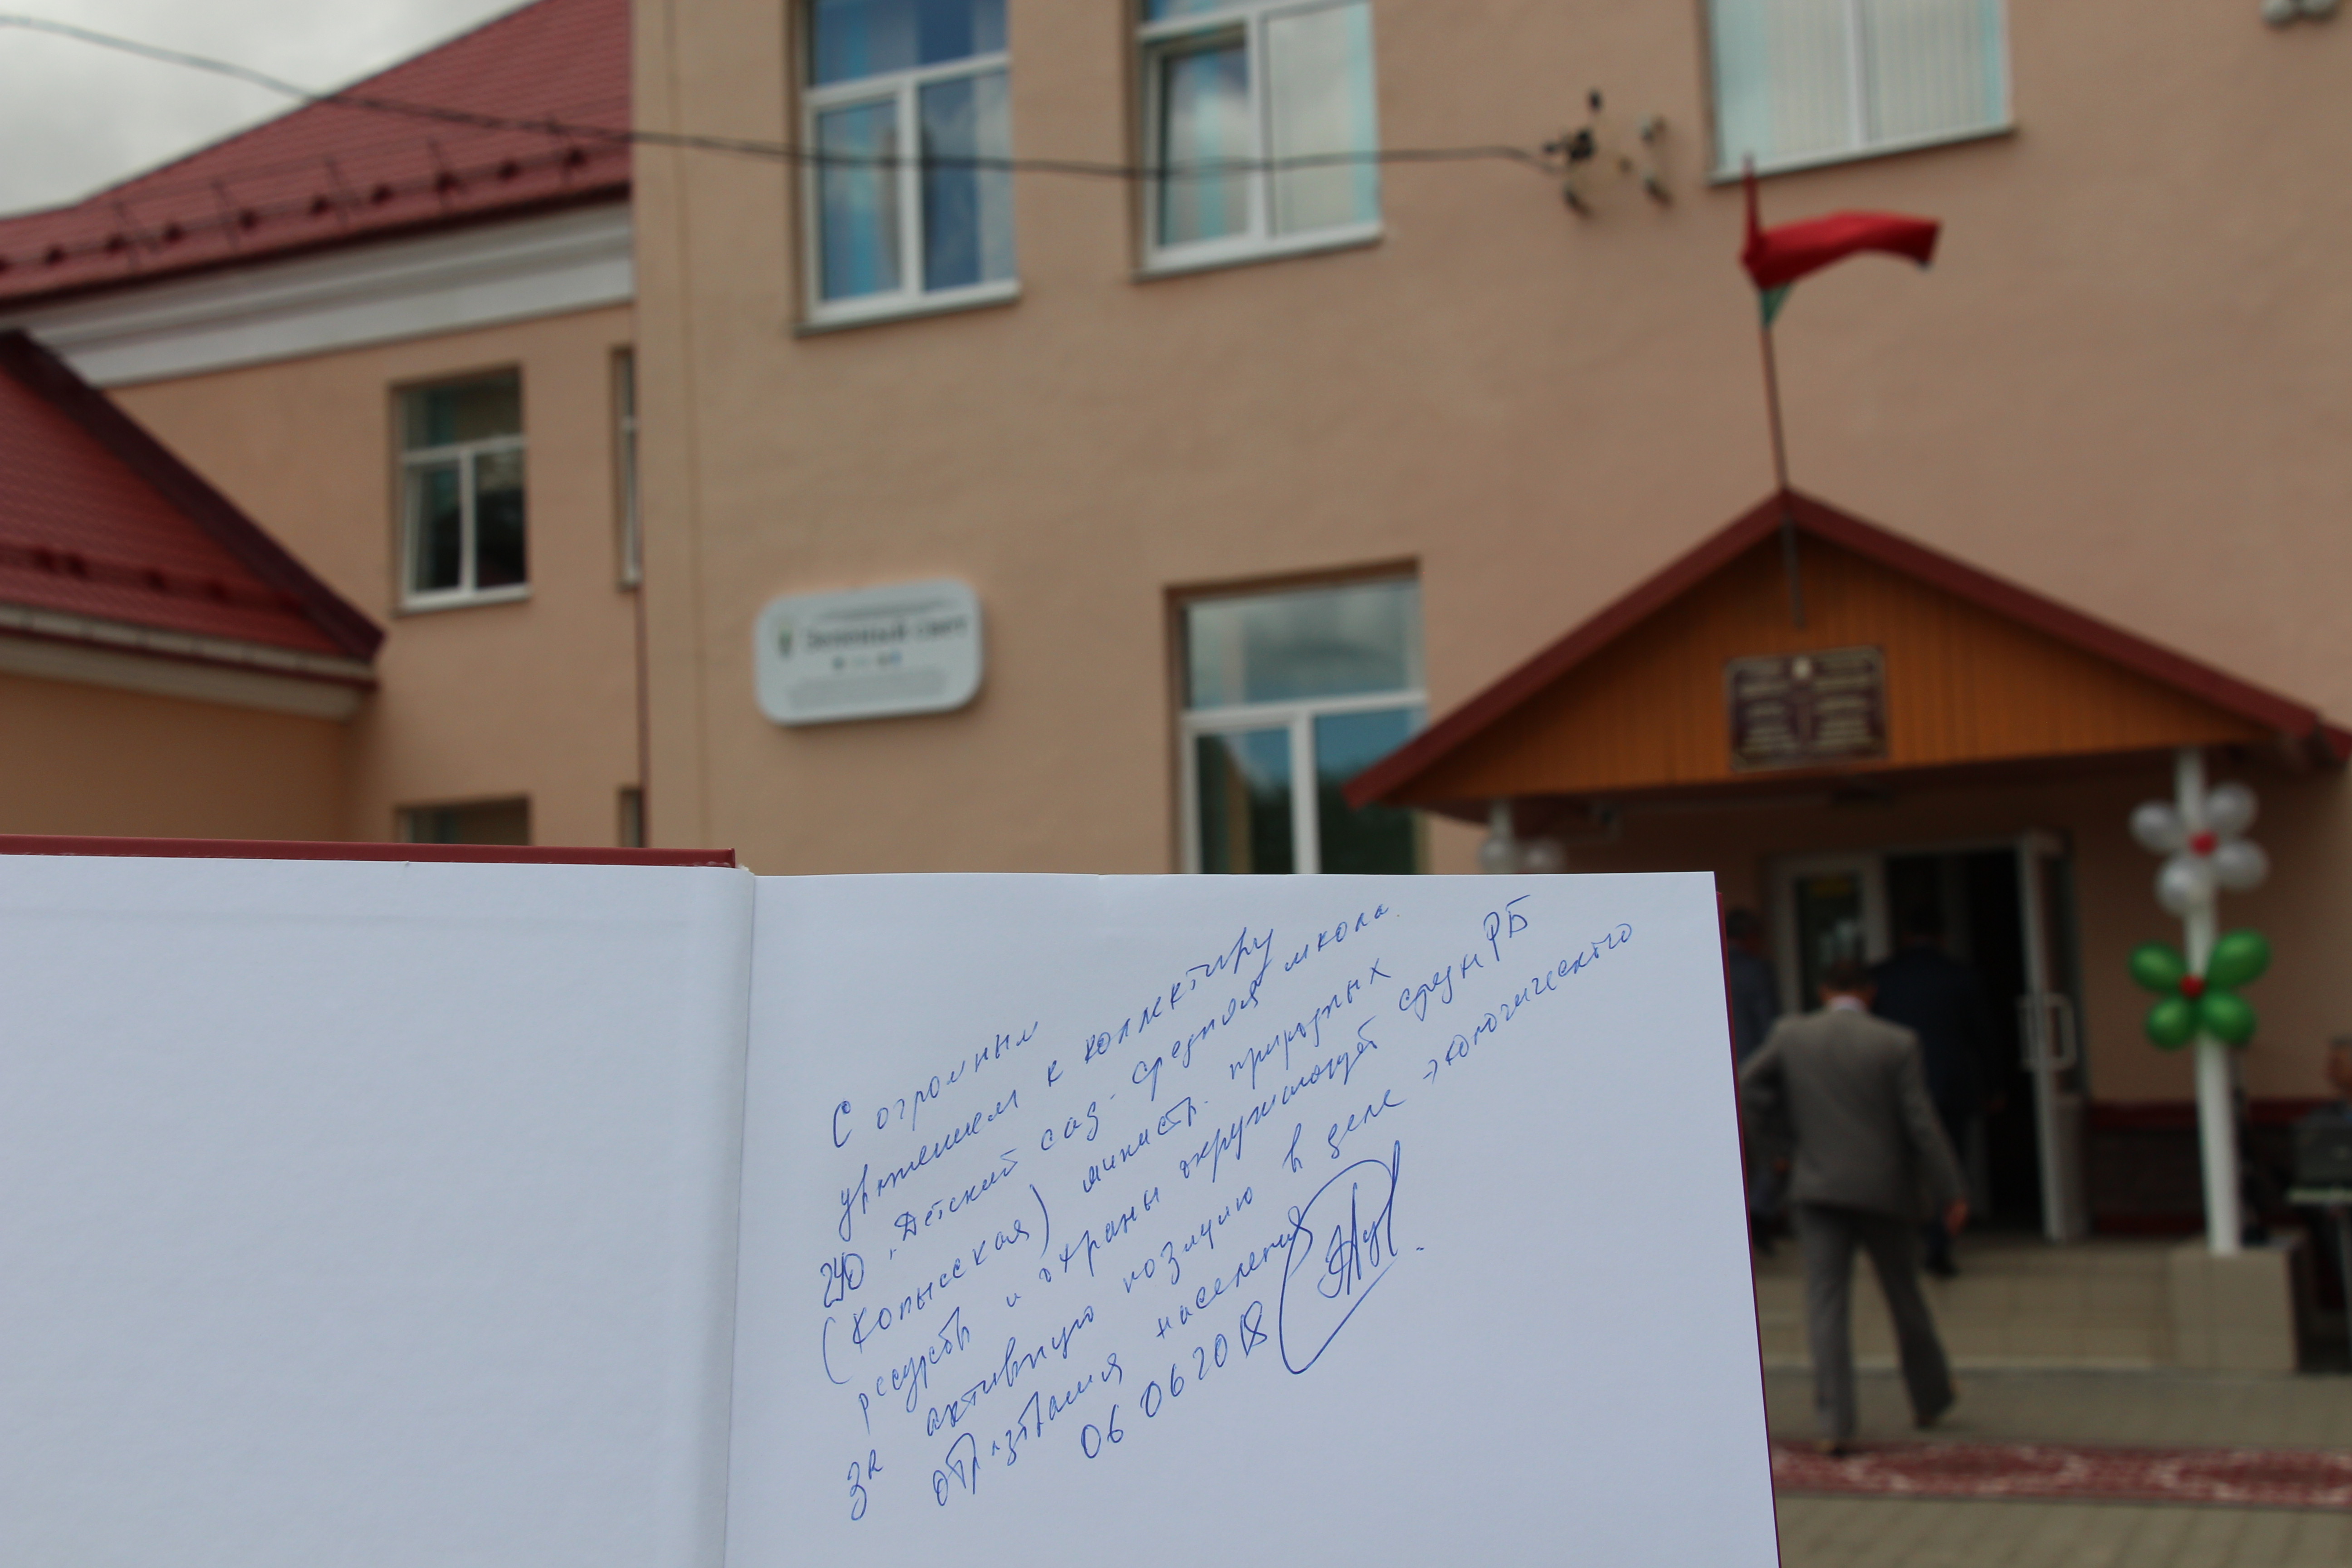 Зеленый свет
С огромным
уважением к коллективу
ГУО "Детский сад-средняя школа
(Копысская) министр природных
ресурсов и охраны окружающей среды РБ
за активную позицию в деле экологического
образования населения
06 06 2018